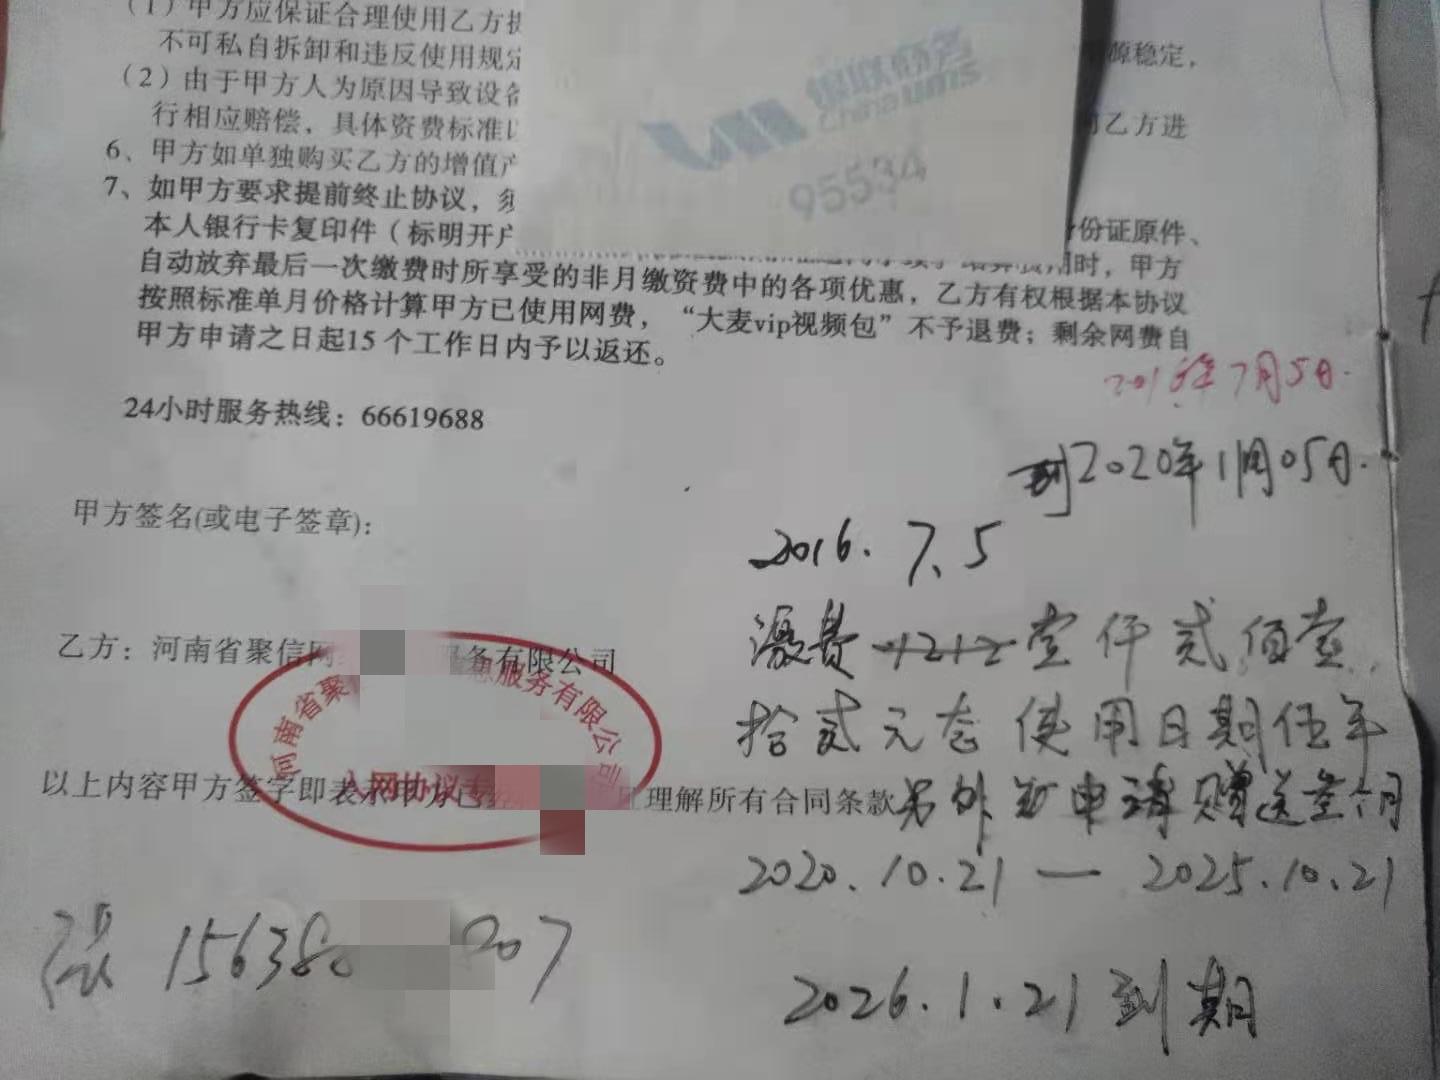 (1)甲方应保证合理使用乙方提
源稳定，
不可私自拆卸和违反使用规定
(2)由于甲方人为原因导致设备
行相应赔偿，具体资费标准以
乙方进
6、甲方如单独购买乙方的增值产
7、如甲方要求提前终止协议，须
份证原件、
本人银行卡复印件（标明开户
时，甲方
自动放弃最后一次缴费时所享受的非月缴资费中的各项优惠，乙方有权根据本协议
按照标准单月价格计算甲方已使用网费，“大麦vip视频包”不予退费；剩余网费自
甲方申请之日起15个工作日内予以返还。
95534
年7月5日.
24小时服务热线：66619688
到2020年1月05日.
甲方签名(或电子签章)：
2016.7.5
乙方：河南省聚信网
服务有限公司
河南省聚
息服务有限公司
入网协议专
缴费 壹仟贰佰壹
拾贰元
使用日期伍年
以上内容甲方签字即表示甲方已
理解所有合同条款
另外
申请赠送 个月
2020.10.21—2025.10.21
张 156380
207
2026.1.21到期